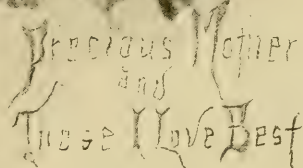 Precious Mother
and
These I Love Best